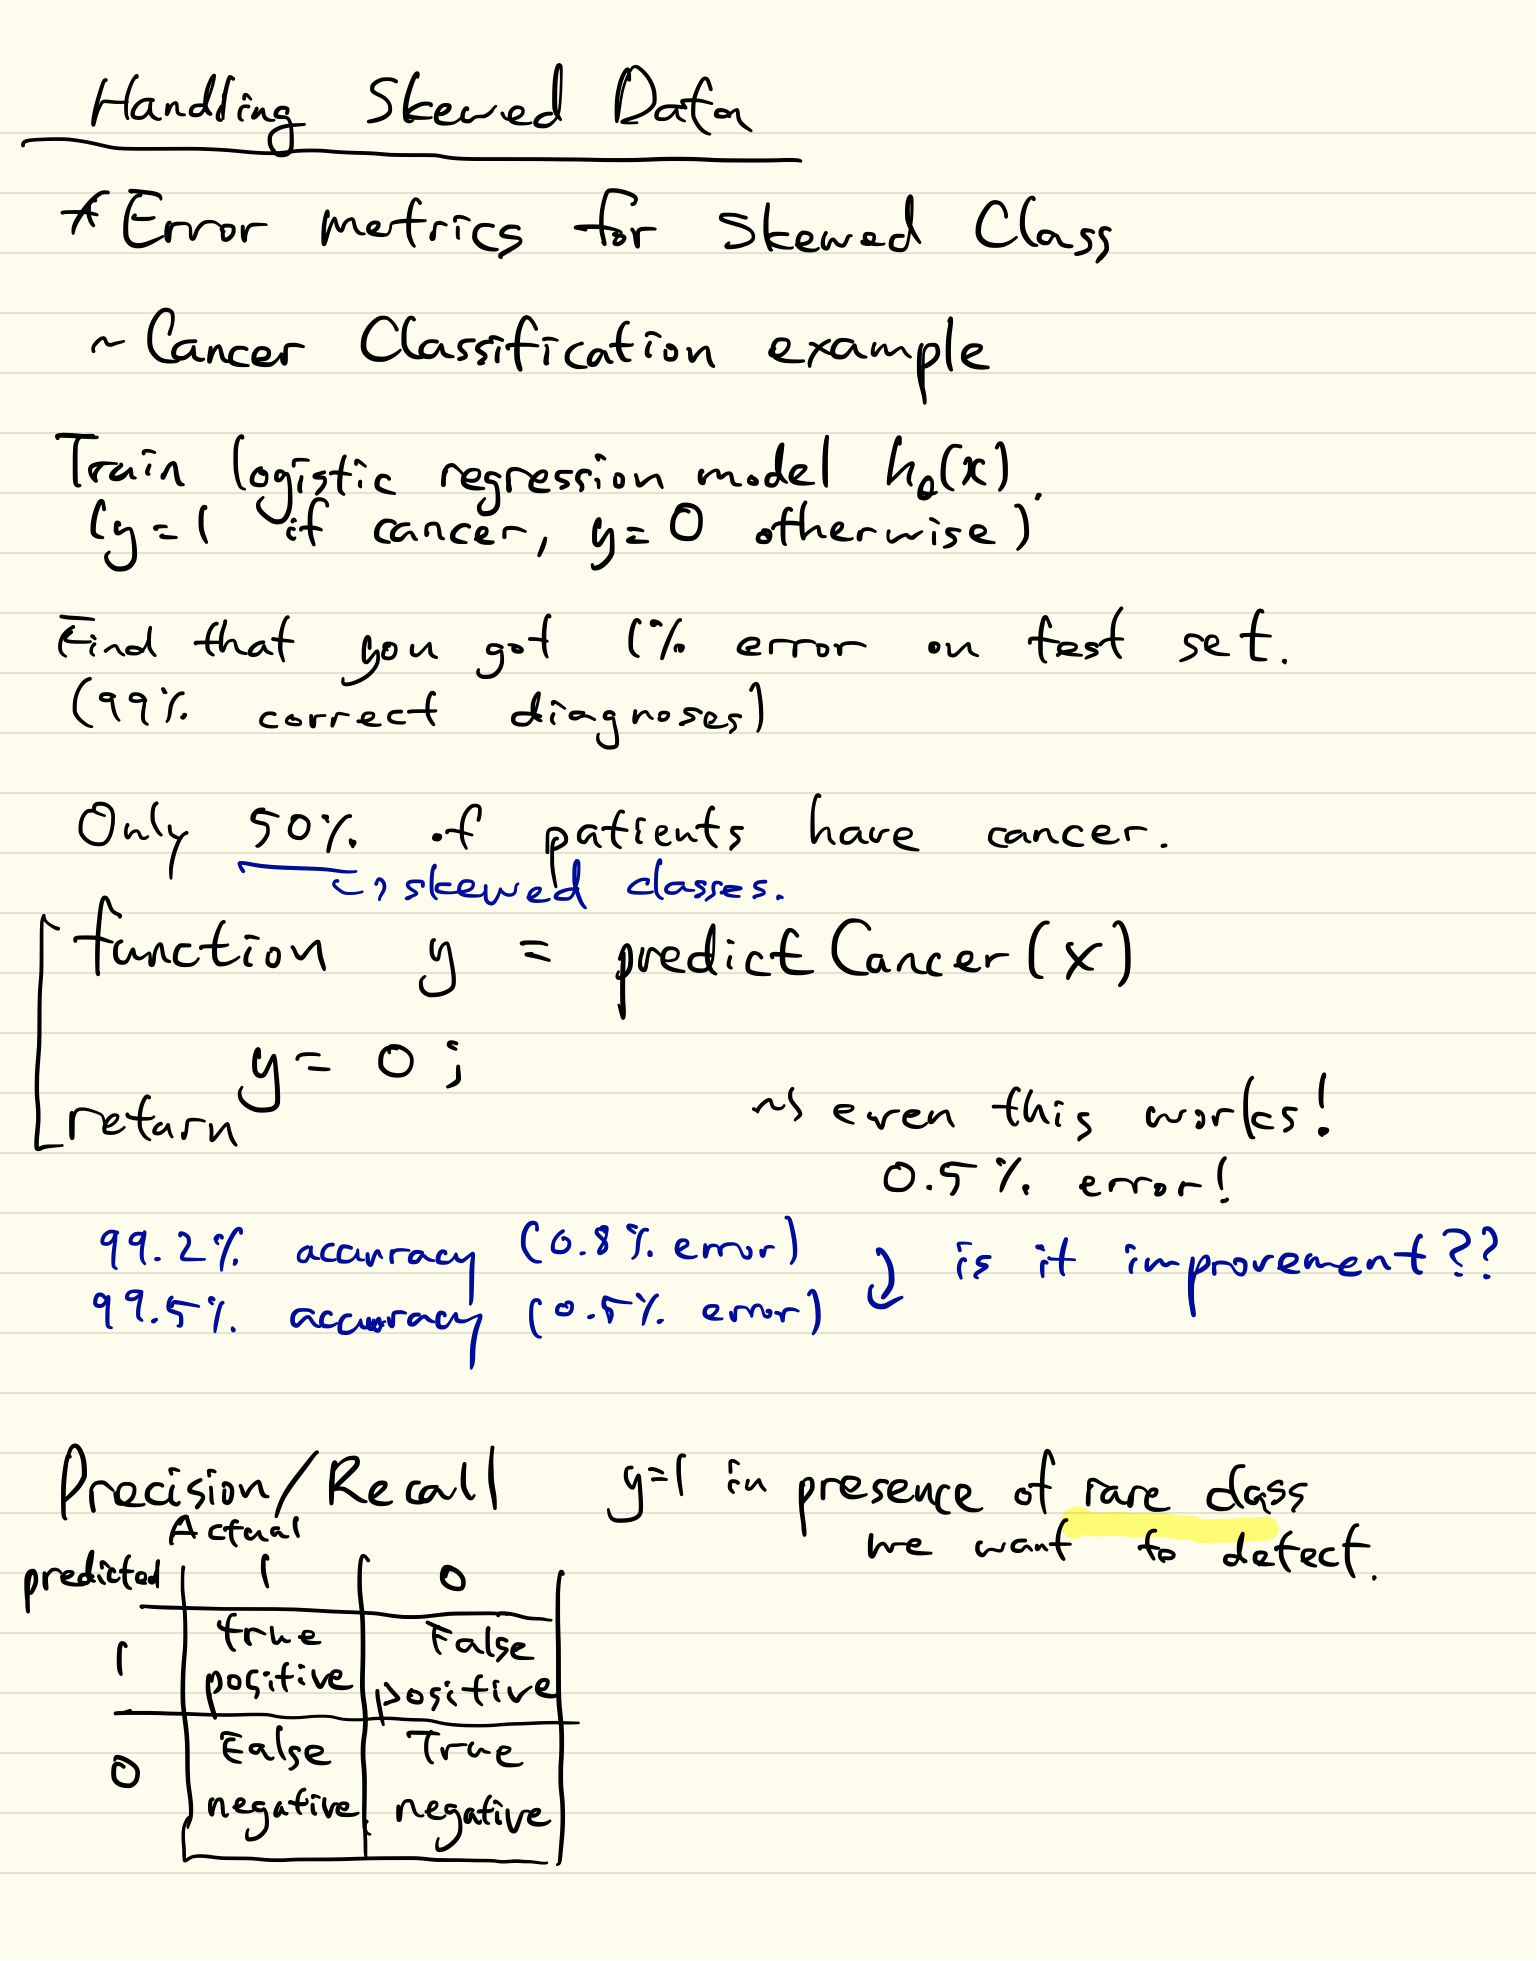 Handling Skewed Data
* Error metrics for skewed Class
~ Cancer Classification example
Train logistic regression model hθ(x).
(y=1 if cancer, y=0 otherwise)
Find that you got 1% error on test set.
(99% correct diagnoses)
Only 50% of patients have cancer.
↪ skewed classes.
function y = predictCancer(x)
y = 0;
return
~> even this works!
0.5% error!
99.2% accuracy (0.8% error)
99.5% accuracy (0.5% error)
is it improvement??
Precision/Recall y=1 in presence of rare class
we want to detect.
Actual
predicted 1 0
1 true positive False positive
0 False negative True negative